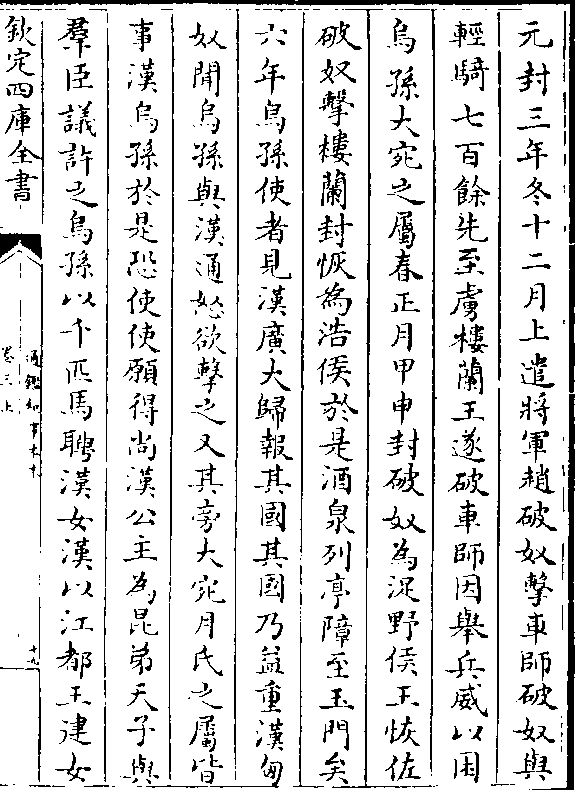 元封三年冬十二月上遣將軍趙破奴擊車師破奴與
輕騎七百餘先至虜樓蘭王遂破車師因舉兵威以困
烏孫大宛之屬春正月甲申封破奴為浞野侯王恢佐
破奴擊樓蘭封恢為浩侯於是酒泉列亭障至玉門矣
六年烏孫使者見漢廣大歸報其國其國乃益重漢匈
奴聞烏孫與漢通怒欲擊之又其旁大宛月氏之屬皆
事漢烏孫於是恐使使願得尚漢公主為昆弟天子與
羣臣議許之烏孫以千匹馬聘漢女漢以江都王建女
欽定四庫全書
通鑑紀事本末
卷三上
十九